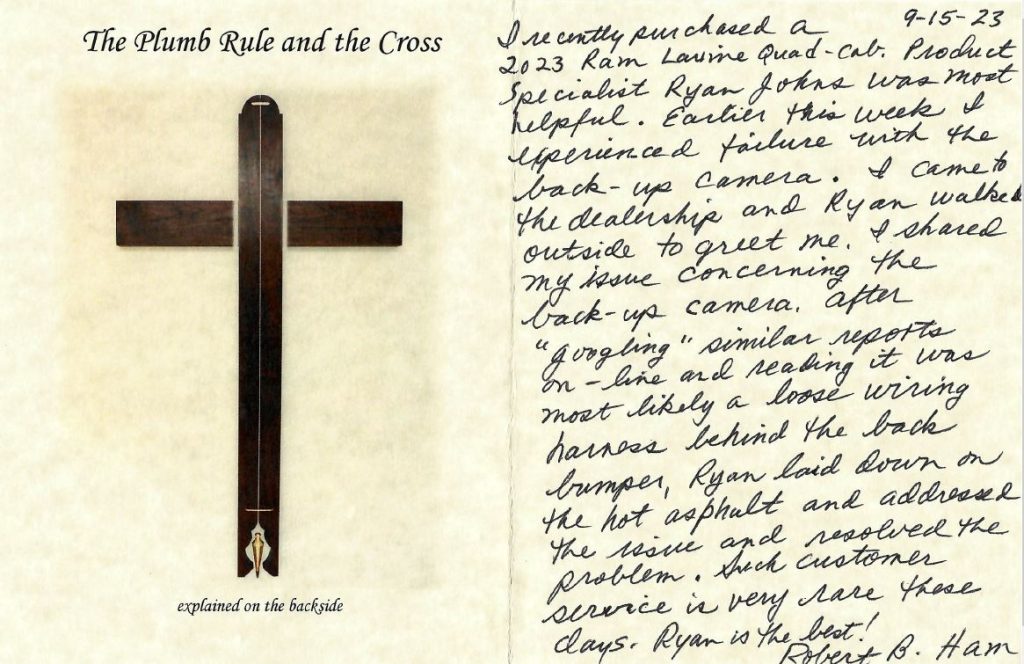 The Plumb Rule and the Cross
explained on the backside
9-15-23
I recently purchased a
2023 Ram Larime Quad-cab. Product
Specialist Ryan Johns was most
helpful. Earlier this week I
experienced failure with the
back-up camera. I came to
the dealership and Ryan walked
outside to greet me. I shared
my issue concerning the
back-up camera. After
"googling" similar reports
on-line and reading it was
most likely a loose wiring
harness behind the back
bumper, Ryan laid down on
the hot asphalt and addressed
the issue and resolved the
problem. Such customer
service is very rare these
days. Ryan is the best!
Robert B. Ham